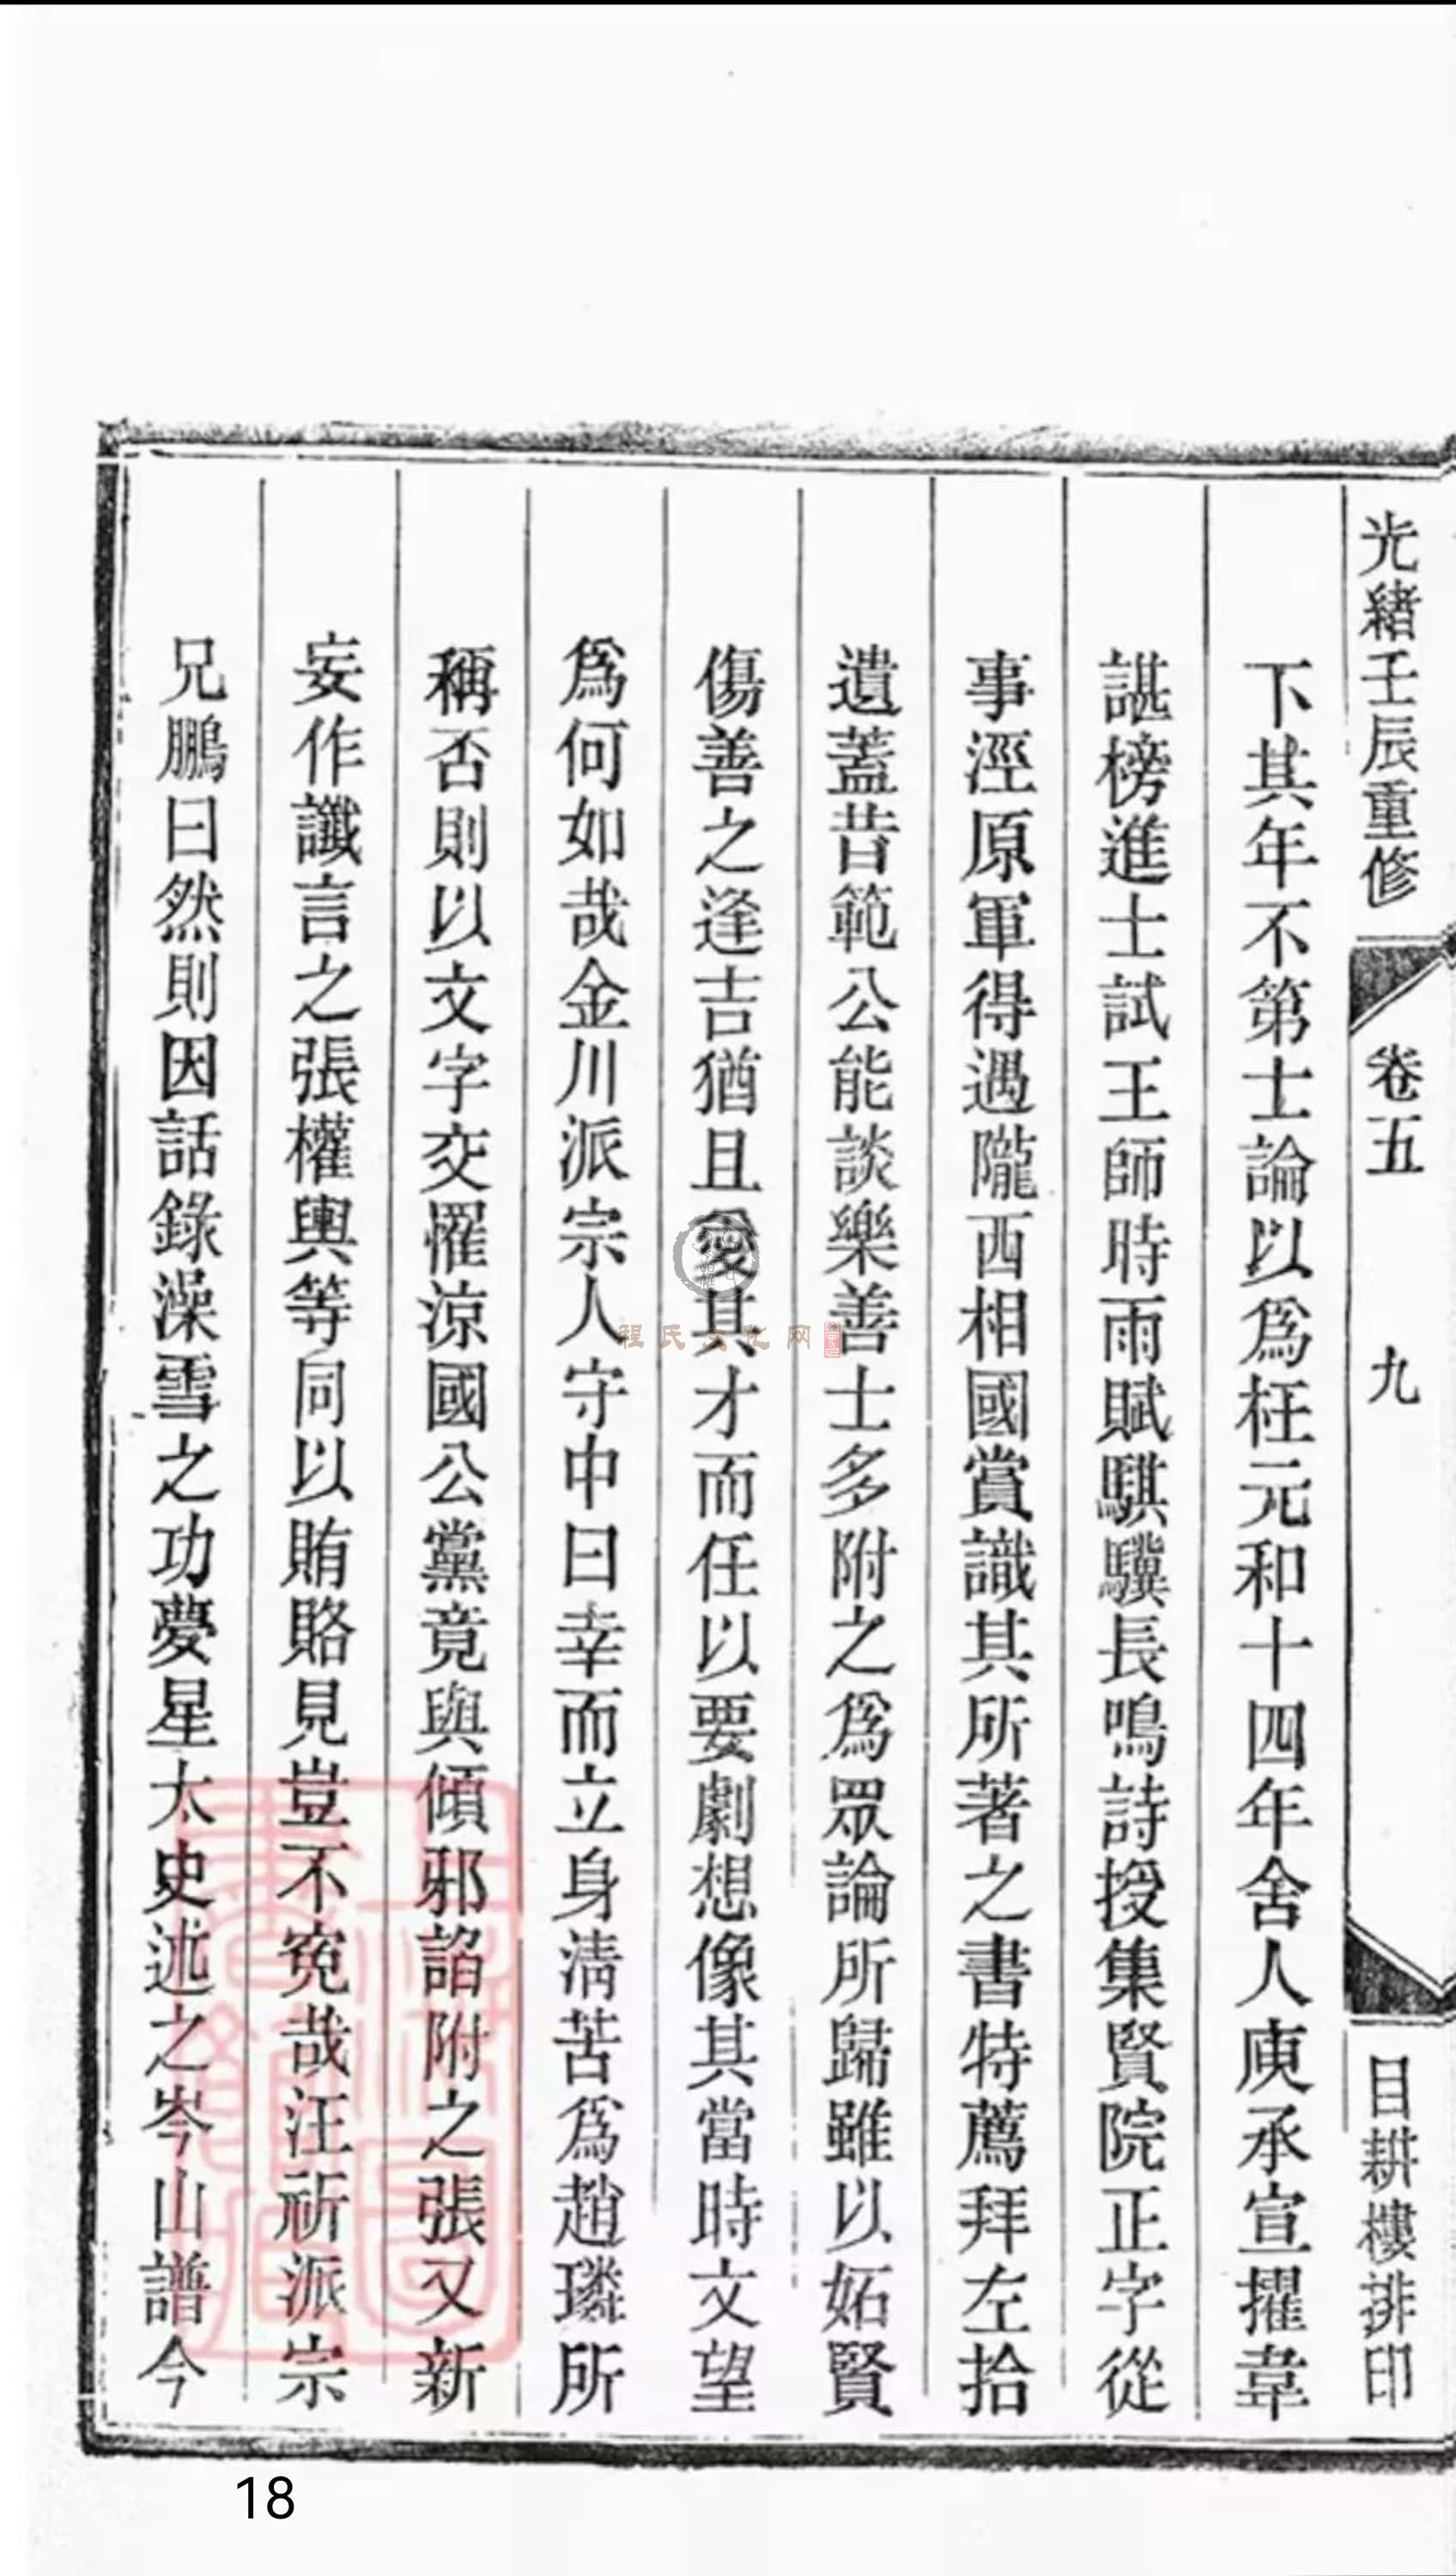 光緒壬辰重修 卷五 九 目耕樓排印
下其年不第士論以為枉元和十四年舍人庾承宣擢韋
諶榜進士試王師時雨賦騏驥長鳴詩授集賢院正字從
事涇原軍得遇隴西相國賞識其所著之書特薦拜左拾
遺蓋昔範公能談樂善士多附之為眾論所歸雖以妬賢
傷善之逢吉猶且愛其才而任以要劇想像其當時文望
為何如哉金川派宗人守中曰幸而立身清苦為趙璘所
稱否則以文字交罹涼國公黨竟與傾邪諂附之張又新
妄作讖言之張權輿等同以賄賂見豈不冤哉汪祈派宗
兄鵬曰然則因話錄澡雪之功夢星太史述之岑山譜今
程氏文化网
18